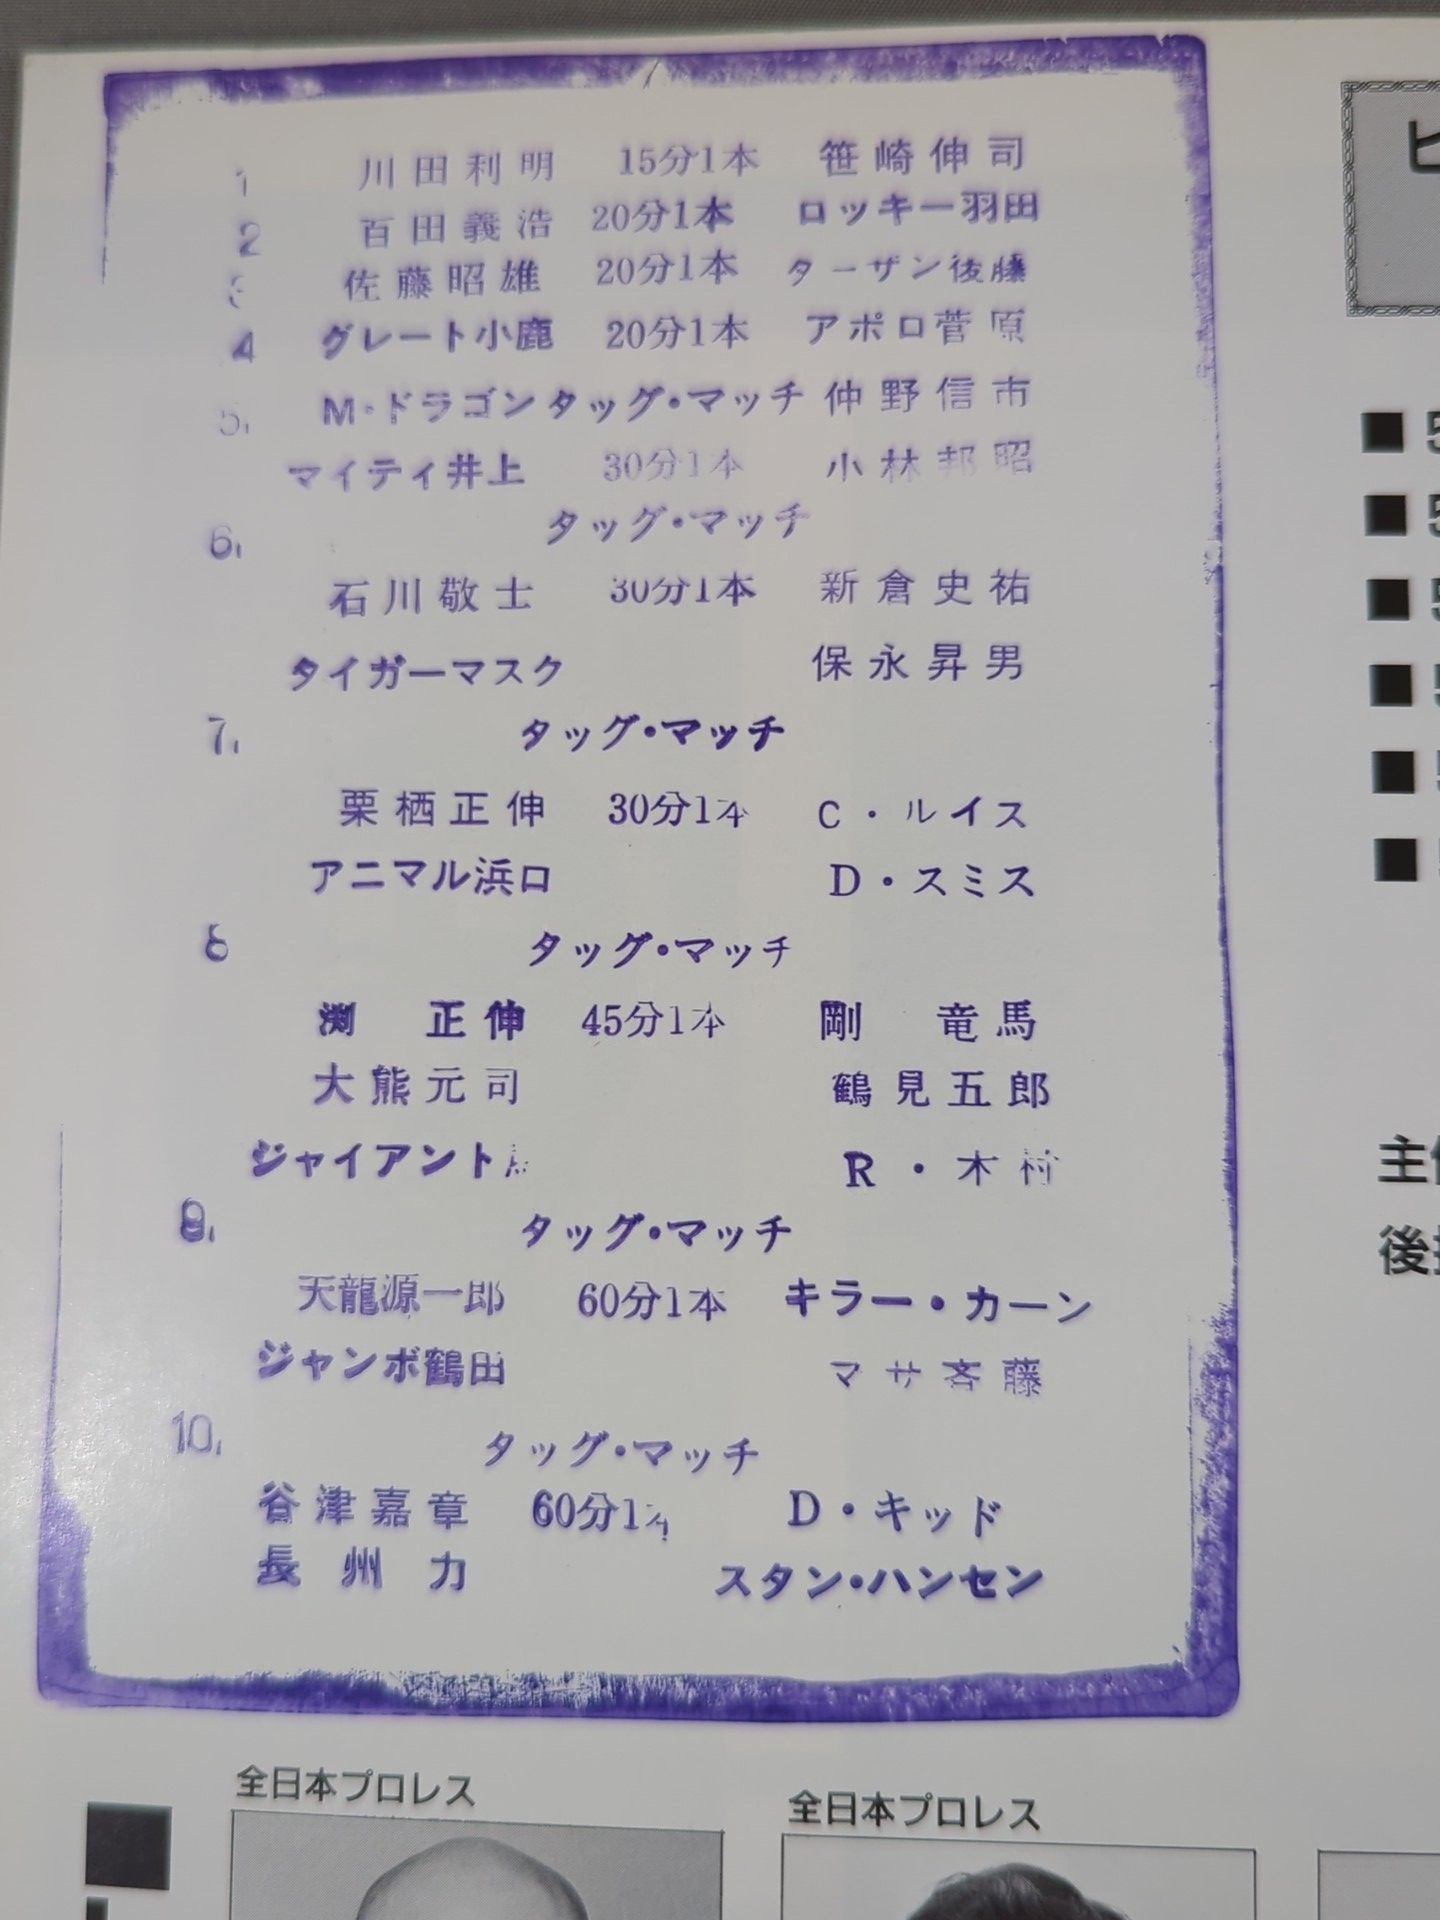 1 川田利明 15分1本 笹崎伸司
2 百田義浩 20分1本 ロッキー羽田
3 佐藤昭雄 20分1本 ターザン後藤
4 グレート小鹿 20分1本 アポロ菅原
5. M・ドラゴン タッグ・マッチ 仲野信市
マイティ井上 30分1本 小林邦昭
6. タッグ・マッチ
石川敬士 30分1本 新倉史祐
タイガーマスク 保永昇男
7. タッグ・マッチ
栗栖正伸 30分1本 C・ルイス
アニマル浜口 D・スミス
8 タッグ・マッチ
渕 正伸 45分1本 剛 竜馬
大熊元司 鶴見五郎
ジャイアント R・木村
9. タッグ・マッチ
天龍源一郎 60分1本 キラー・カーン
ジャンボ鶴田 マサ斉藤
10. タッグ・マッチ
谷津嘉章 60分1本 D・キッド
長州力 スタン・ハンセン
ビ
■5
■5
■5
■
■
■
主催
後援
全日本プロレス
全日本プロレス